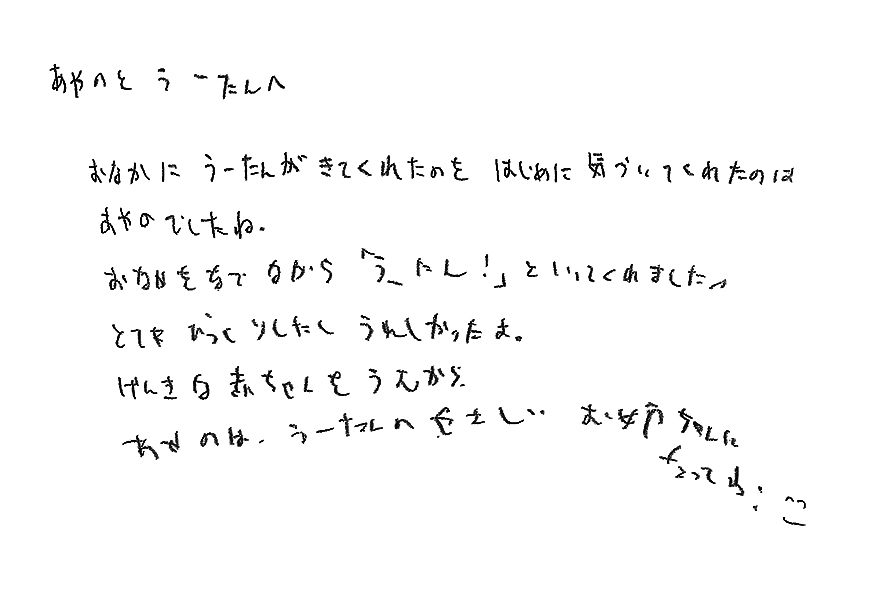 あやのと うーたんへ
おなかに うーたんが きてくれたのを はじめに 気づいてくれたのは
あやのでしたね。
おなかをなでながら「うーたん!」といってくれました。
とても びっくりしたし うれしかったよ。
げんきな 赤ちゃんをうむから
あやのは、うーたんの やさしい お姉ちゃんに
なってね